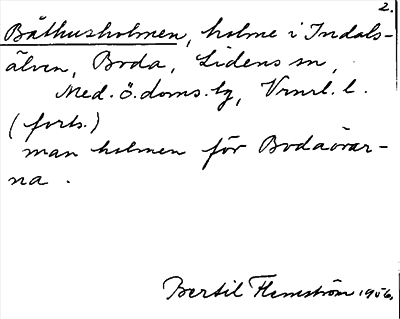 2.
Båthusholmen, holme i Indals-
älven, Boda, Lidens sn,
Med. ö. doms. bg, Vrnrl. l.
(forts.)
man holmen för Bodaörar-
na.
Bertil Flemström 1956.